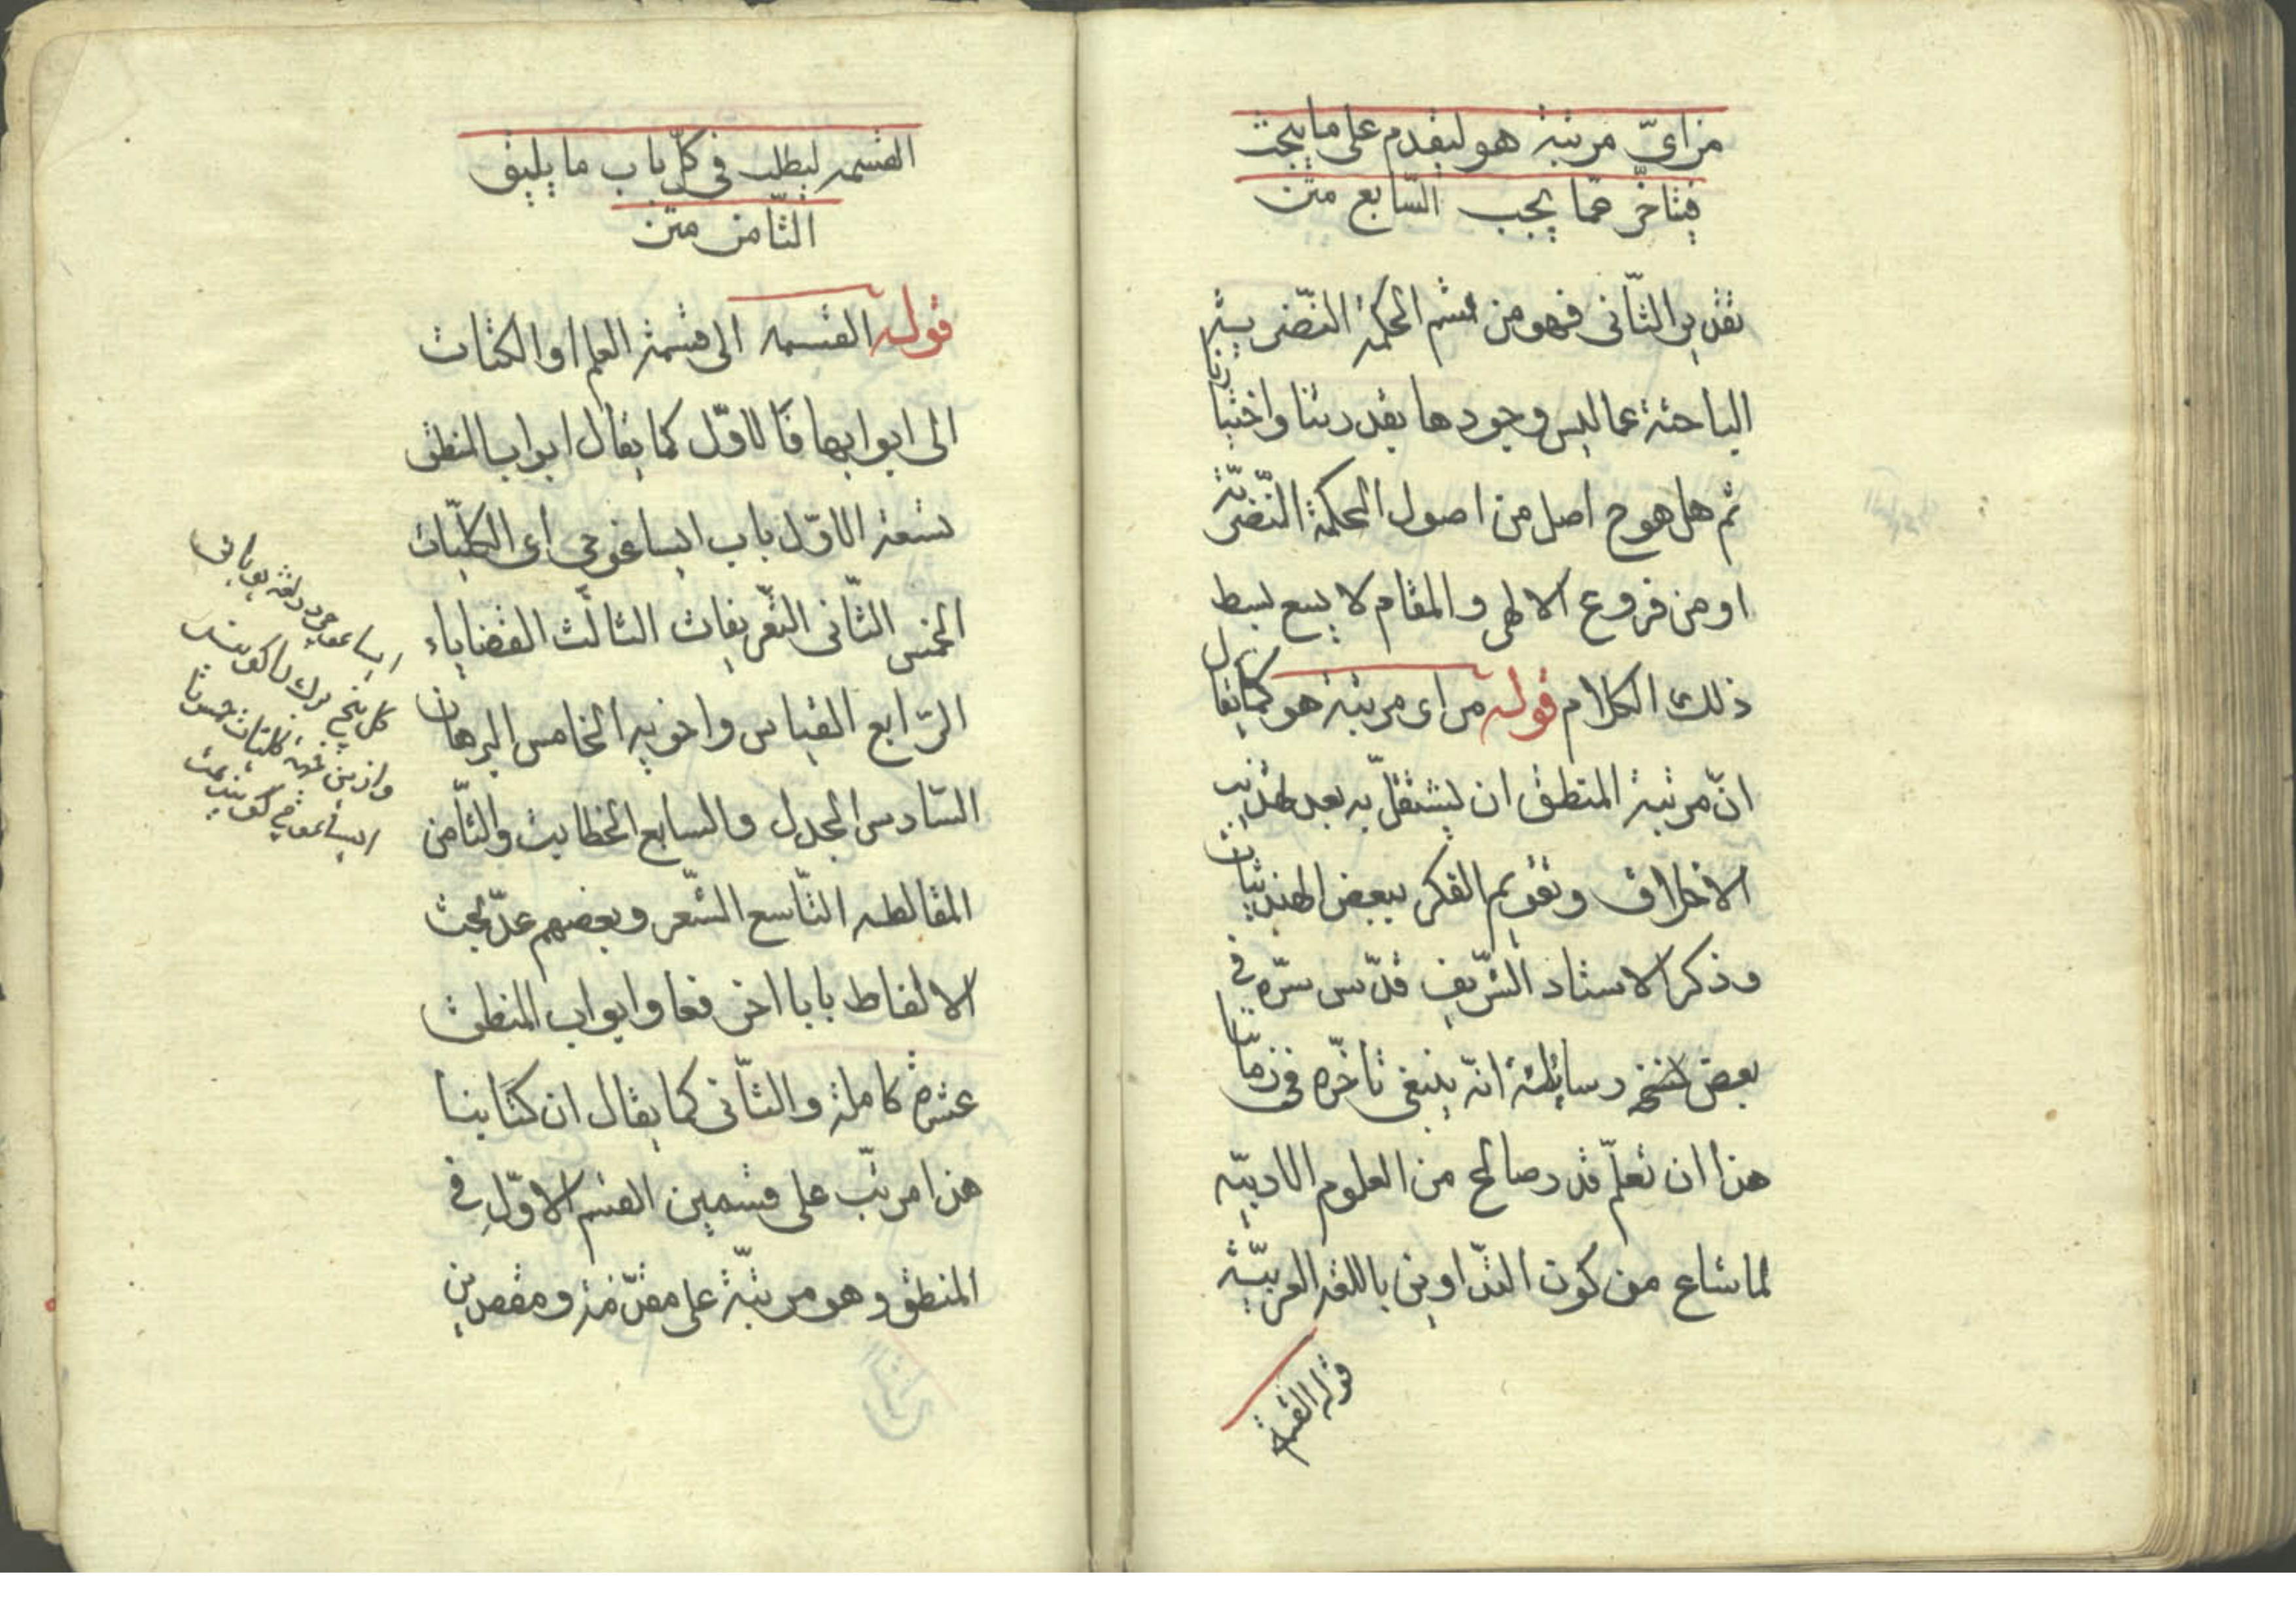 من ایّ مرتبة هو ليقدم على ما يجب
فيتاخّر عمّا يجب السّابع متن
تقدير الثّانى فهو من قسم الحكمة النّضرية
الباحثة عما ليس وجودها بقدرتنا واختيارنا
ثم هل هو ح اصل من اصول الحكمة النّضريّة
او من فروع الالهى والمقام لا يسع بسط
ذلك الكلام قوله من اى مرتبة هو كما يقال
انّ مرتبة المنطق ان يشتغل به بعد تهذيب
الاخلاق وتقويم الفكر ببعض الهندسيات
وذكر الاستاد الشّريف قدّس سرّه فى
بعض رسائله انّه ينبغى تاخّره فى زماننا
هذا ان تعلّم قدر صالح من العلوم الادبيّه
لما شاع من كون التدّاوين باللغة العربيّة
قوله القسمة
القسمه ليطلب فى كلّ باب ما يليق
الثّامن متن
قوله القسمه الى قسمة العلم او الكتاب
الى ابوابها فالاوّل كما يقال ابواب المنطق
تسعة الاوّل باب ايساغوجى اى الكلّيات
الخمس الثّانى التّعريفات الثالث القضاياء
الرّابع القياس واخويه الخامس البرهان
السّادس الجدل والسابع الخطابت والثّامن
المغالطه التّاسع الشّعر وبعضهم عدّ بحث
الالفاظ بابا اخر فعاد ابواب المنطق
عشرة كاملة والثّانى كما يقال ان كتابنا
هذا مرتّب على قسمين القسم الاوّل فى
المنطق وهو مرتبّة على مقدّمة ومقصدين
ايساغوجى در لغة يونانى
كل پنج برك را كويند
وازين جهة كليات خمس را
ايساغوجى كويند